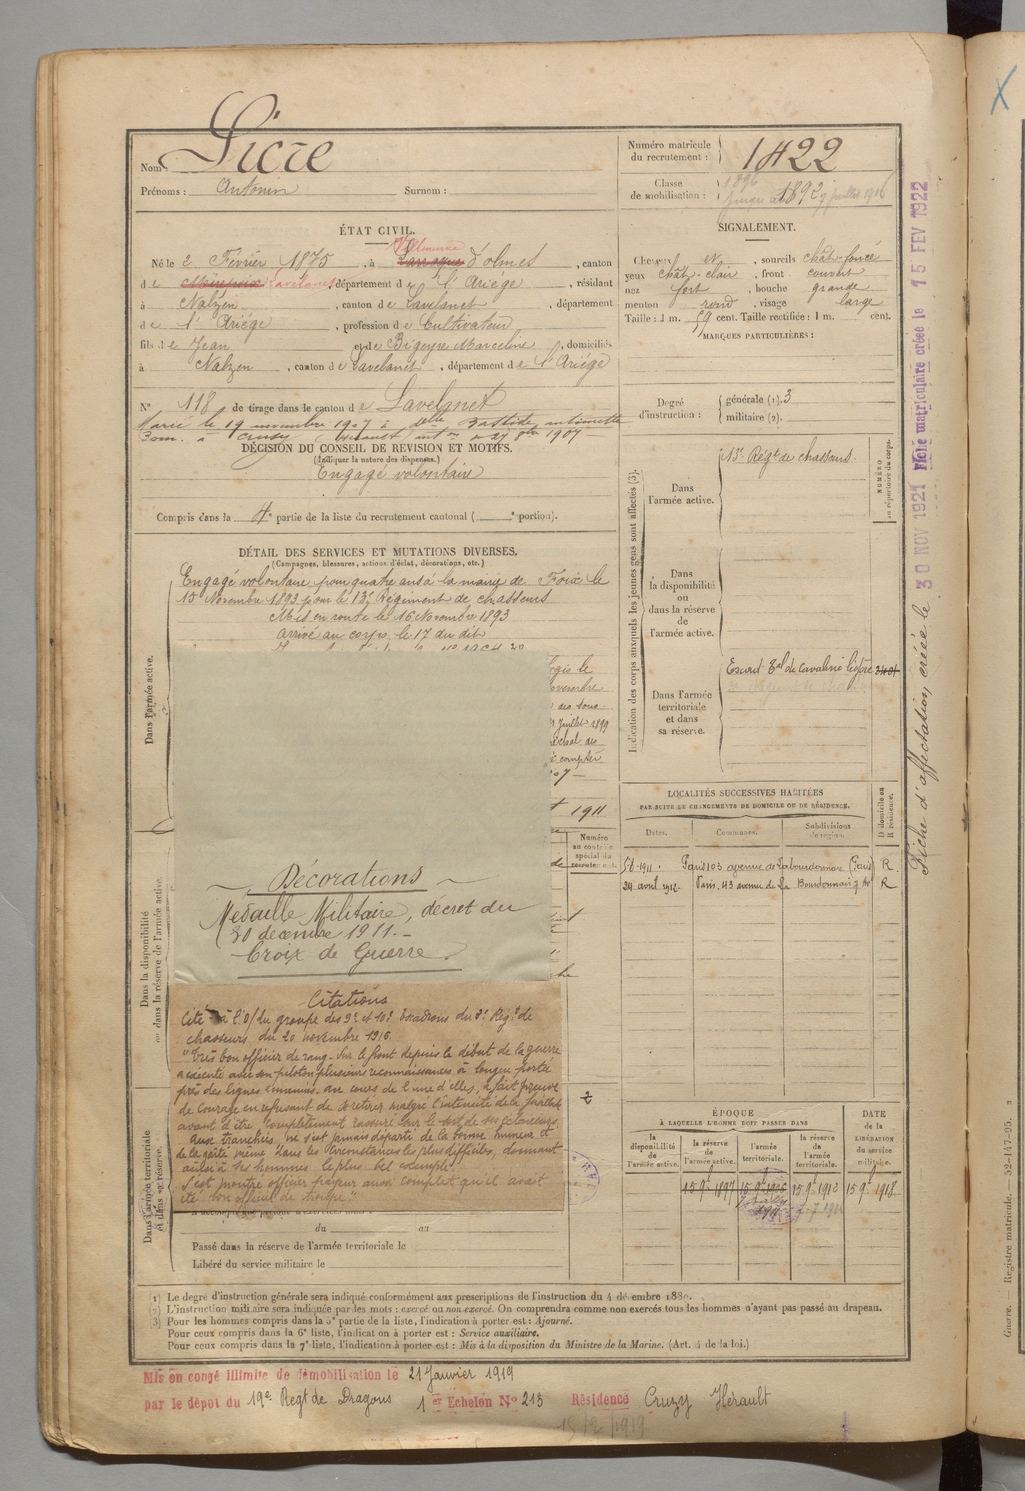 Nom : Sicre
Prénoms : Antonin Surnom :
Numéro matricule du recrutement : 1422
Classe de mobilisation : 1896
1892 juillet 1916
ÉTAT CIVIL.
Villeneuve
Né le 2 Février 1875, à Larroque d'olmes, canton
d e Mirepoix Lavelanet, département d e l'Ariège, résidant
à Nalzen, canton d e Lavelanet, département
d e l'Ariège, profession d e Cultivateur
fils d e Jean et d e Bigeyre Marceline, domiciliés
à Nalzen, canton d e Lavelanet, département d e l'Ariège
N° 118 de tirage dans le canton d e Lavelanet
Marié le 19 novembre 1907 à delle Battide Antoinette
Dom. à Cruzy 27 8bre 1907
DÉCISION DU CONSEIL DE REVISION ET MOTIFS.
(Indiquer la nature des dispenses.)
Engagé volontaire
Compris dans la 4e partie de la liste du recrutement cantonal ( e portion).
DÉTAIL DES SERVICES ET MUTATIONS DIVERSES.
(Campagnes, blessures, actions d'éclat, décorations, etc.)
Engagé volontaire pour quatre ans à la mairie de Foix le
15 Novembre 1893 pour le 13e Régiment de chasseurs
Mis en route le 16 Novembre 1893
arrivé au corps le 17 du dit
logis le
novembre
des sous
juillet 1899
chal des
compter
07
1911
Numéro au contrôle spécial du recrutement.
Dans l'armée active.
Dans la disponibilité ou dans la réserve de l'armée active.
Dans l'armée territoriale et dans sa réserve.
Décorations
Médaille Militaire, décret du
30 décembre 1911.-
Croix de Guerre.
Citations
Cité à l'O/ du groupe des 9e et 10e Escadrons du 7e Régt de
chasseurs du 20 novembre 1916.
"Très bon officier de rang. Sur le front depuis le début de la guerre
a exécuté avec son peloton plusieurs reconnaissances à longue portée
près des lignes ennemies. au cours de l'une d'elles, a fait preuve
de courage en refusant de se retirer malgré l'intensité de la fusillade
avant d'être complètement rassuré sur le sort de ses éclaireurs.
Aux tranchées, ne s'est jamais départi de la bonne humeur et
de la gaîté même dans les circonstances les plus difficiles, donnant
ainsi à ses hommes le plus bel exemple.
S'est montré officier sapeur aussi complet qu'il avait
été bon officier de troupe"
du au
Passé dans la réserve de l'armée territoriale le
Libéré du service militaire le
SIGNALEMENT.
Cheveux N, sourcils chât-foncé
yeux chât-clair, front couvert
nez fort, bouche grande
menton rond, visage large
Taille : 1 m. 59 cent. Taille rectifiée : 1 m. cent.
MARQUES PARTICULIÈRES :
Degré d'instruction : générale (1). 3
militaire (2).
Indication des corps auxquels les jeunes gens sont affectés (3).
NUMÉRO au répertoire du corps.
Dans l'armée active.
13e Régt de chasseurs.
Dans la disponibilité ou dans la réserve de l'armée active.
Dans l'armée territoriale et dans sa réserve.
Escad. Ral de Cavalerie légère
LOCALITÉS SUCCESSIVES HABITÉES
PAR SUITE DE CHANGEMENTS DE DOMICILE OU DE RÉSIDENCE.
Dates. Communes. Subdivisions de région. D domicile ou R résidence.
1911. Paris 103 avenue de Labourdonnais (Paris) R.
24 avril 1912. Paris. 43 avenue de La Bourdonnais R
ÉPOQUE
À LAQUELLE L'HOMME DOIT PASSER DANS
DATE de la LIBÉRATION du service militaire.
la disponibilité de l'armée active.
la réserve de l'armée active.
l'armée territoriale.
la réserve de l'armée territoriale.
15 9bre 1897 15 9bre 1906 15 9bre 1912 15 9bre 1918
(1) Le degré d'instruction générale sera indiqué conformément aux prescriptions de l'instruction du 4 décembre 1889.
(2) L'instruction militaire sera indiquée par les mots : exercé ou non exercé. On comprendra comme non exercés tous les hommes n'ayant pas passé au drapeau.
(3) Pour les hommes compris dans la 5e partie de la liste, l'indication à porter est : Ajourné.
Pour ceux compris dans la 6e liste, l'indication à porter est : Service auxiliaire.
Pour ceux compris dans la 7e liste, l'indication à porter est : Mis à la disposition du Ministre de la Marine. (Art. 4 de la loi.)
Mis en congé illimité de démobilisation le 21 Janvier 1919
par le dépôt du 19e Régt de Dragons 1er Echelon N° 213 Résidence Cruzy Hérault
15/2/1919
Fiche d'affectation créée le 30 NOV 1921 Fiche matriculaire créée le 15 FEV 1922
Guerre. — Registre matricule. — 52-147-95.